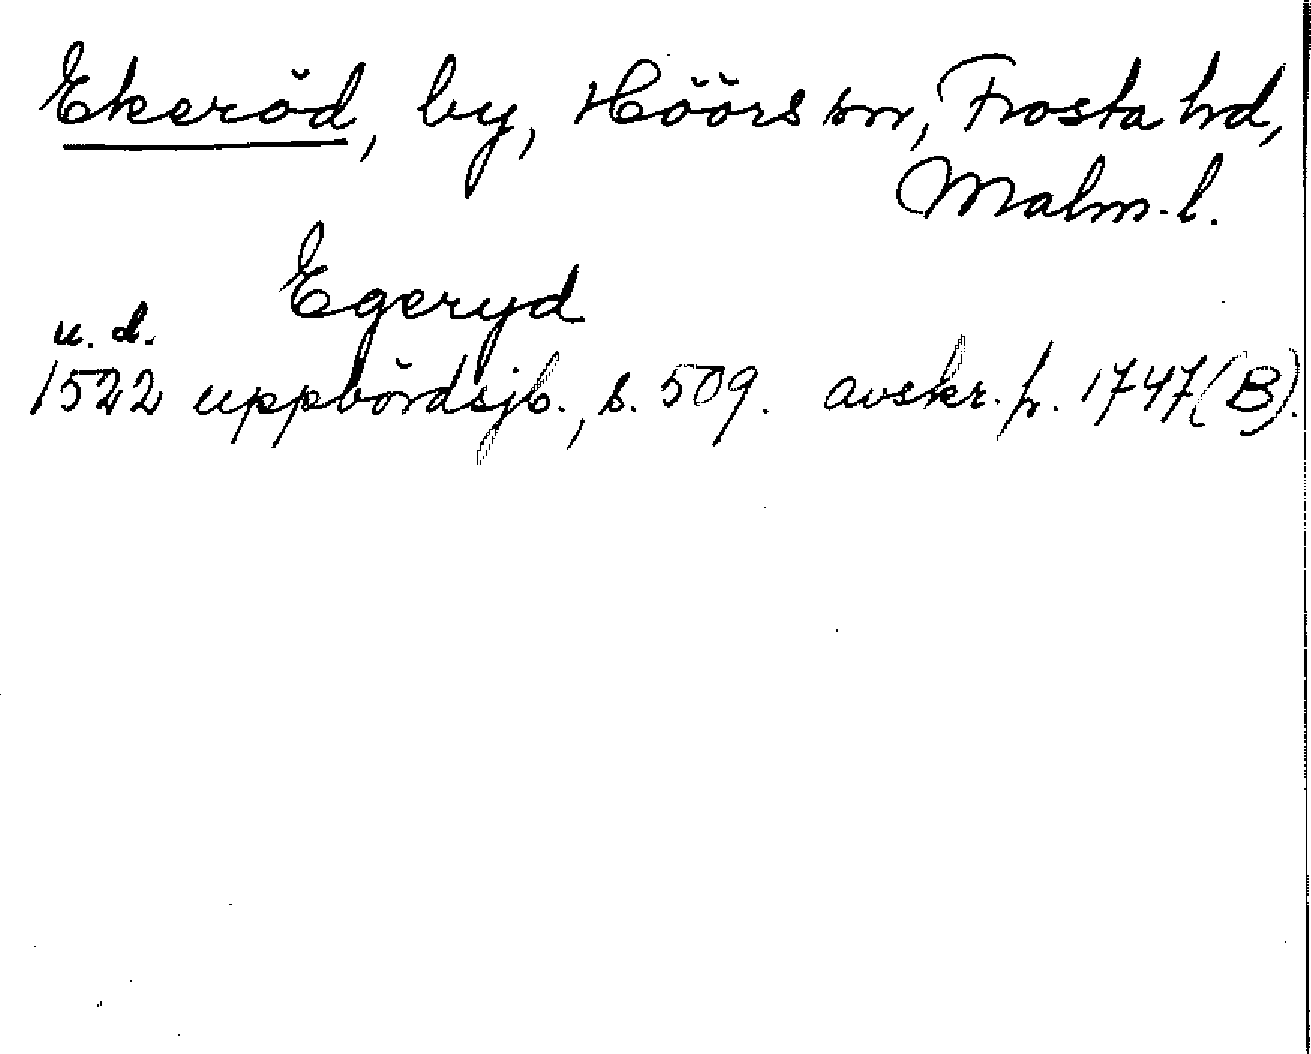 Ekeröd, by, Höörs sn, Frosta hd,
Malm. l.
Egeryd
u. d.
1522 uppbördsjb., s. 509. avskr. fr. 1747 (B).